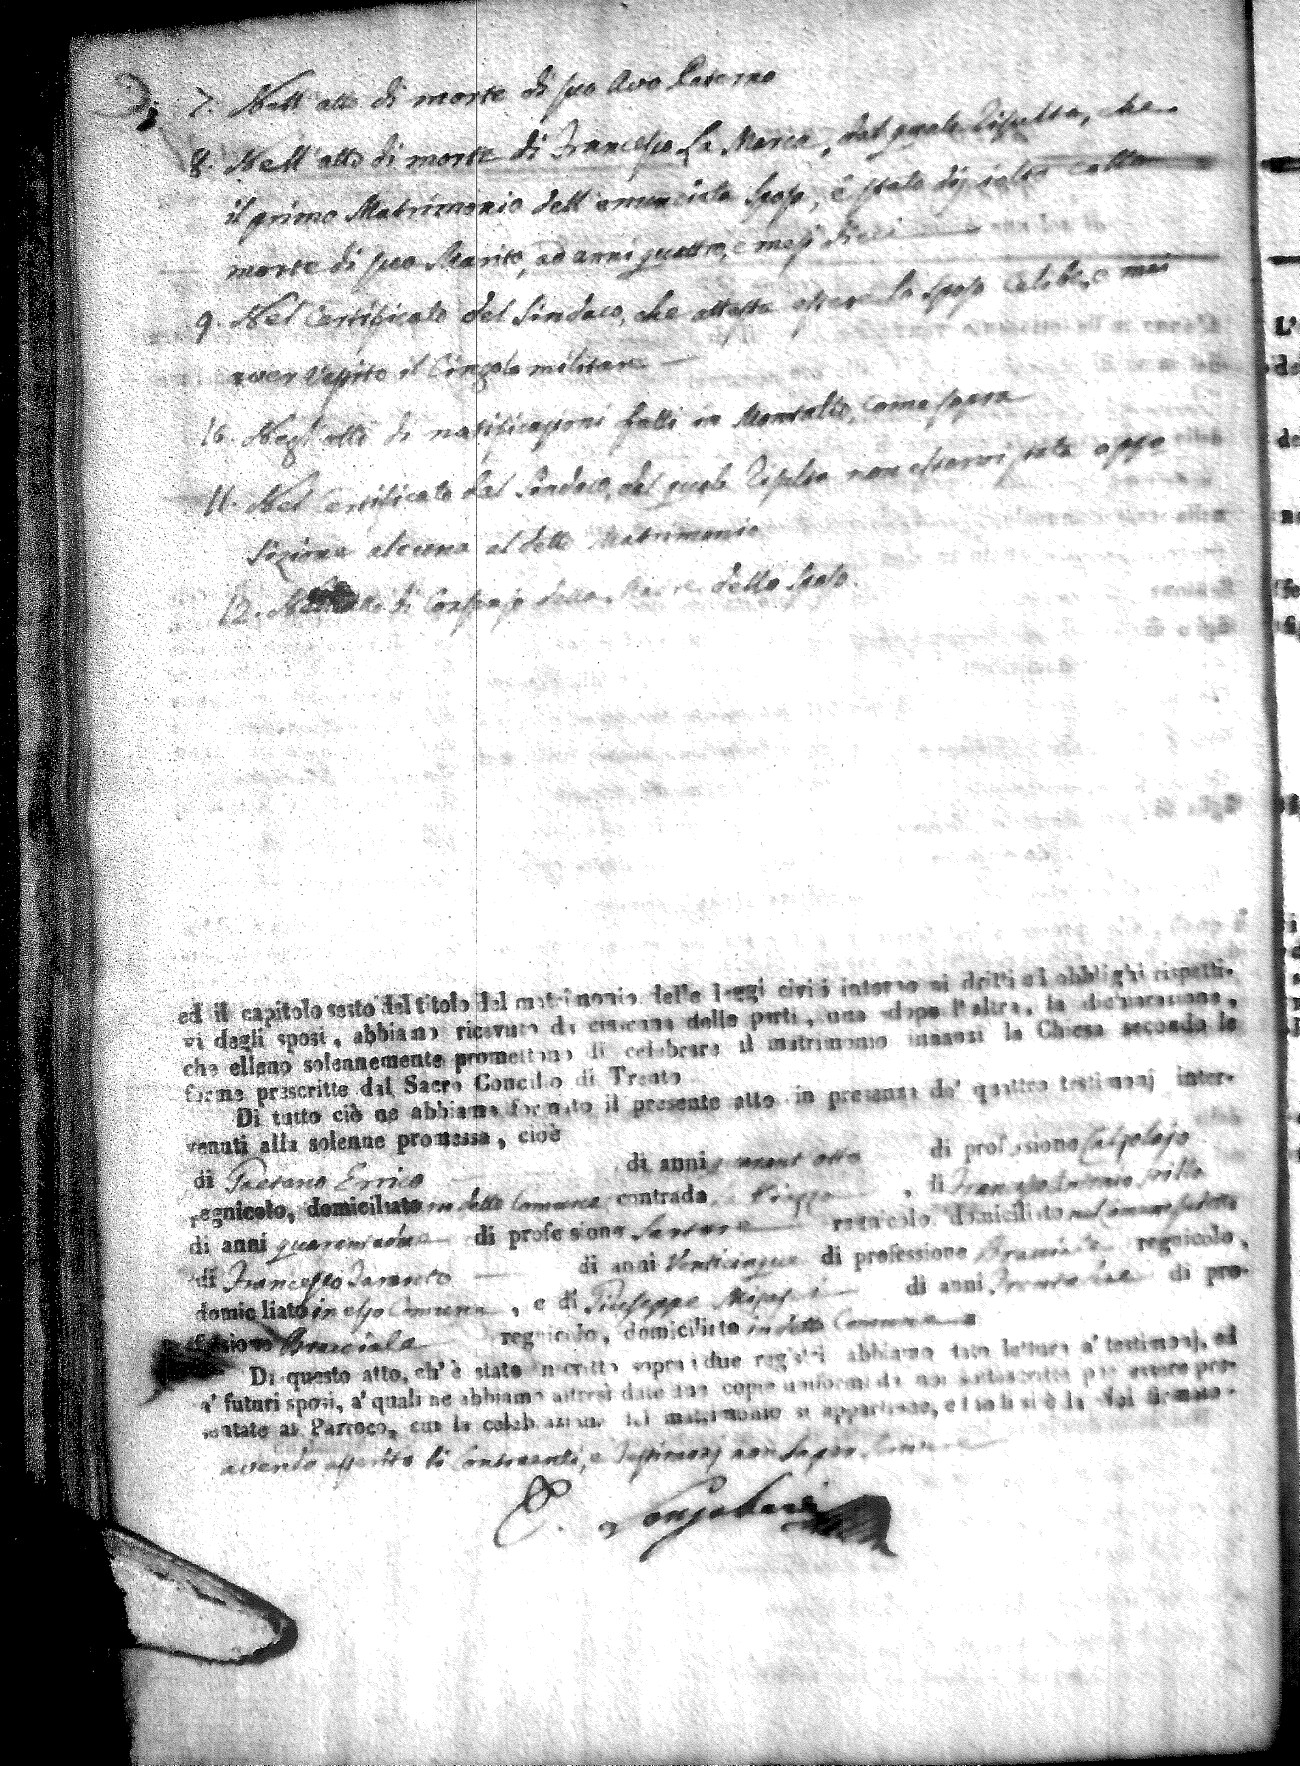 7. Nell'atto di morte di suo Avo Paterno
8. Nell'atto di morte di Francesco La Marca, dal quale risulta, che
il primo Matrimonio dell'enunciata sposa, è stato disciolto colla
morte di suo Marito, ad anni quattro, e mesi dieci
9. Nel Certificato del Sindaco, che attesta essere lo sposo celibe, e mai
aver vestito il Cingolo militare
10. Negl'atti di notificazioni fatti in Montalto, come sopra
11. Nel Certificato del Sindaco, dal quale risulta non esservi stata oppo
sizione alcuna al detto Matrimonio
12. di Consenso della Madre dello sposo.
ed il capitolo sesto del titolo del matrimonio delle leggi civili intorno ai dritti ed obblighi rispetti-
vi degli sposi, abbiamo ricevuto da ciascuna delle parti, una dopo l'altra, la dichiarazione,
che elleno solennemente promettono di celebrare il matrimonio innanzi la Chiesa secondo le
forme prescritte dal Sacro Concilio di Trento
Di tutto ciò ne abbiamo formato il presente atto in presenza de' quattro testimonj inter-
venuti alla solenne promessa, cioè
di Gaetano Errico di anni quarant'otto di professione Calzolajo
regnicolo, domiciliato in detto Comune contrada Piazza, di Francesco Antonio
di anni di professione Sartore regnicolo domiciliato nel Comune suddetto
di Francesco Taranto di anni Venticinque di professione Bracciale regnicolo,
domiciliato in esso Comune, e di Giuseppe di anni di pro-
fessione Bracciale regnicolo, domiciliato in detto Comune
Di questo atto, ch'è stato inscritto sopra i due registri abbiamo dato lettura a' testimonj, ed
a' futuri sposi, a' quali ne abbiamo altresì date due copie uniformi da noi sottoscritte per essere pre-
sentate al Parroco, cui la celebrazione del matrimonio si appartiene, e indi si è da Noi firmato
avendo asserito li Contraenti, e Testimonj non saper firmare